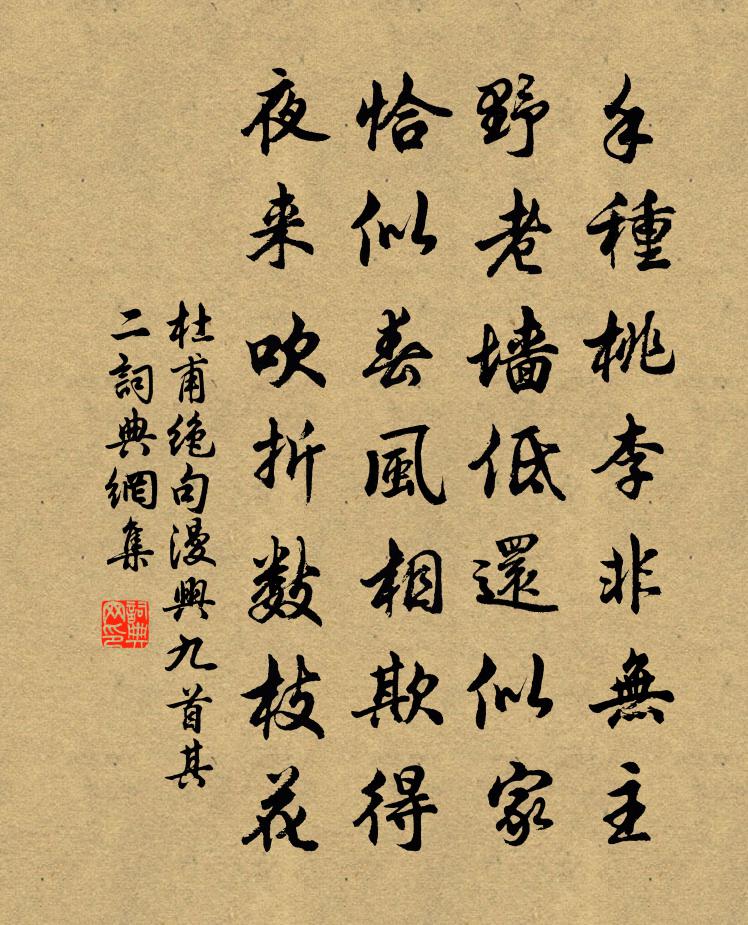 手種桃李非無主
野老墻低還似家
恰似春風相欺得
夜来吹折數枝花
杜甫絕句漫興九首其
二詞典網集
詞典网印